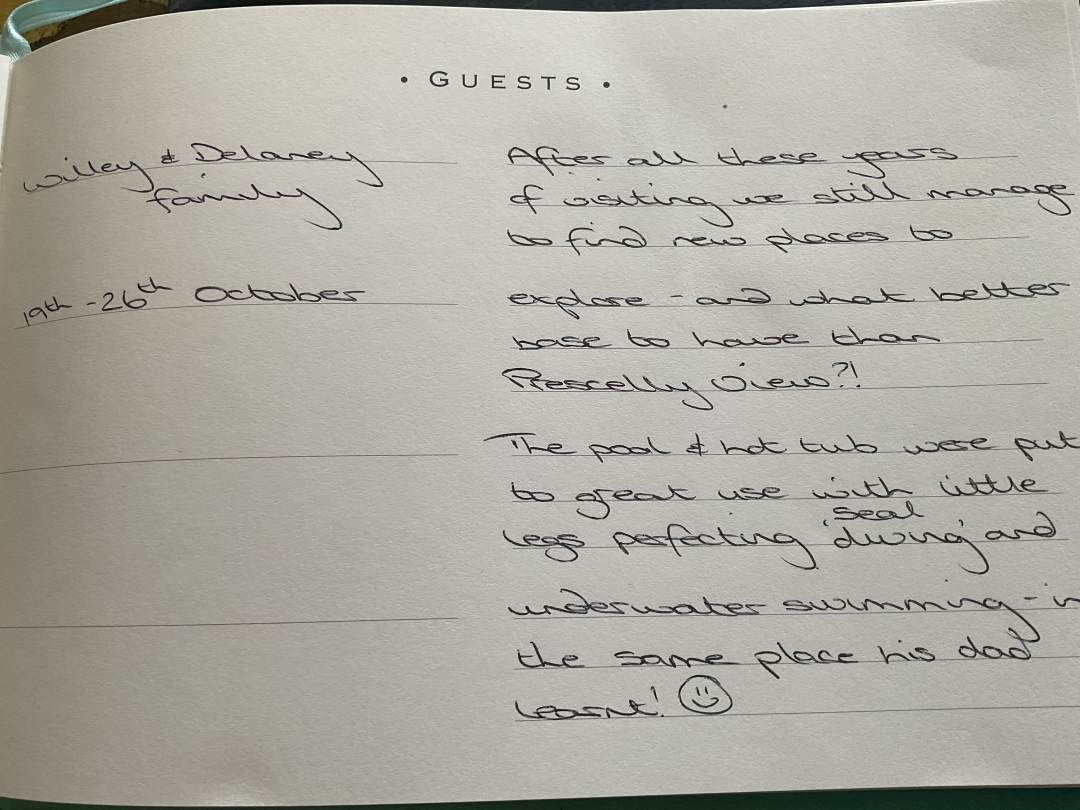 • GUESTS •
Willey & Delaney
family
19th - 26th October
After all these years
of visiting we still manage
to find new places to
explore - and what better
base to have than
Prescelly View?!
The pool & hot tub were put
to great use with little
seal
legs perfecting 'diving' and
underwater swimming - in
the same place his dad
learnt! ☺